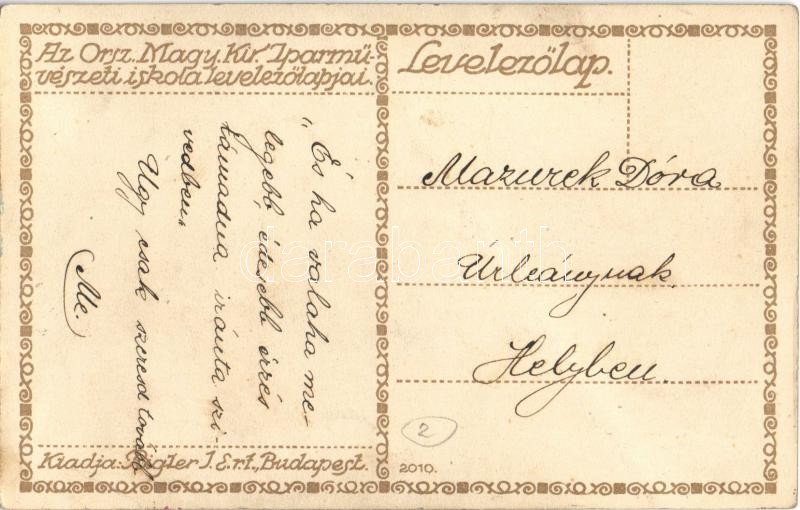 Az Orsz. Magy. Kir. Iparmű-
vészeti iskola levelezőlapjai.
Levelezőlap.
„És ha valaha me-
legebb, édesebb érzés
támadna iránta szi-
vedben„
Ugy csak szeresd tovább
Me.
Mazurek Dóra
Úrleánynak.
Helyben.
2
Kiadja: Rigler J. E. r.t., Budapest.
2010.
darabanth